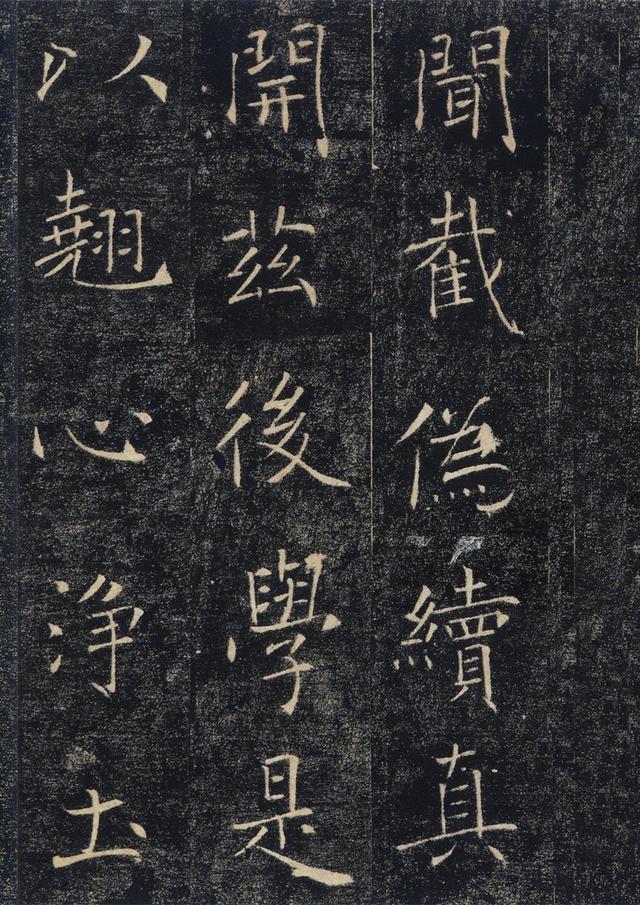 聞截偽續真
開茲後學是
以翹心淨土